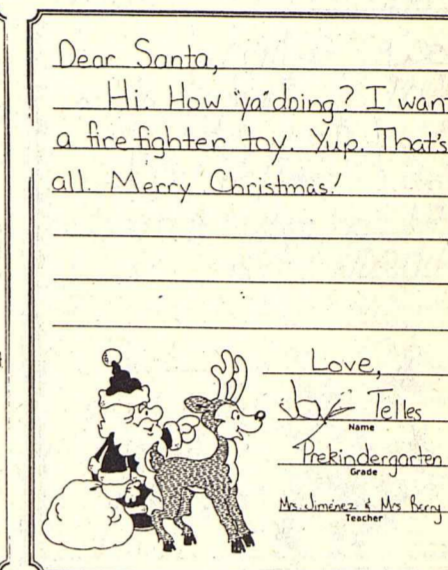 Dear Santa,
Hi. How "ya" doing? I wan
a fire fighter toy. Yup. That's
all. Merry Christmas!
Love,
Telles
Name
Prekindergarten
Grade
Mrs. Jiménez & Mrs. Berry
Teacher